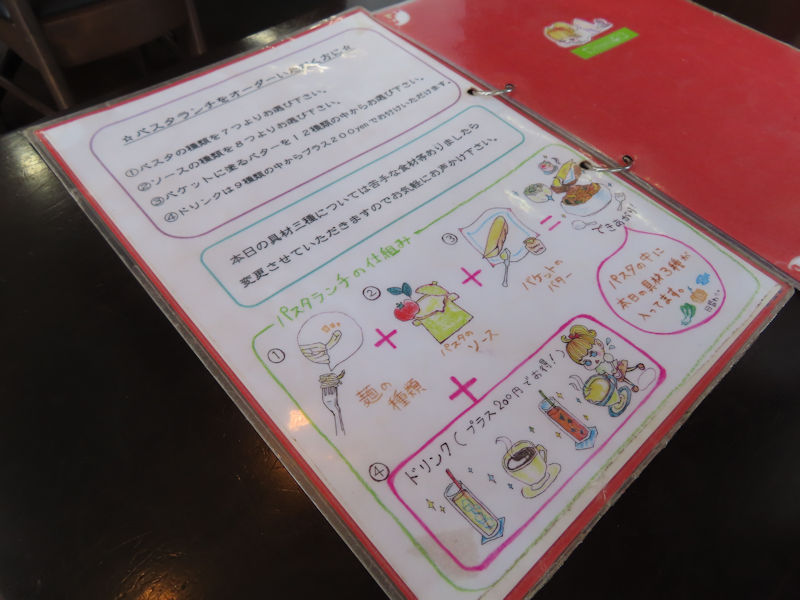 ☆パスタランチをオーダーいただく方に☆
①パスタの種類を7つよりお選び下さい。
②ソースの種類を8つよりお選び下さい。
③バケットに塗るバターを12種類の中からお選び下さい。
④ドリンクは9種類の中からプラス200yenでお付けいただけます。
本日の具材三種については苦手な食材等ありましたら
変更させていただきますのでお気軽にお声かけ下さい。
パスタランチの仕組み
①
麺の
種類
+
②
パスタの
ソース
+
③
バケットの
バター
=
できあがり!
パスタの中に
本日の具材3種が
入ってます。
日替わり
+
④
ドリンク(プラス200円でお得!)